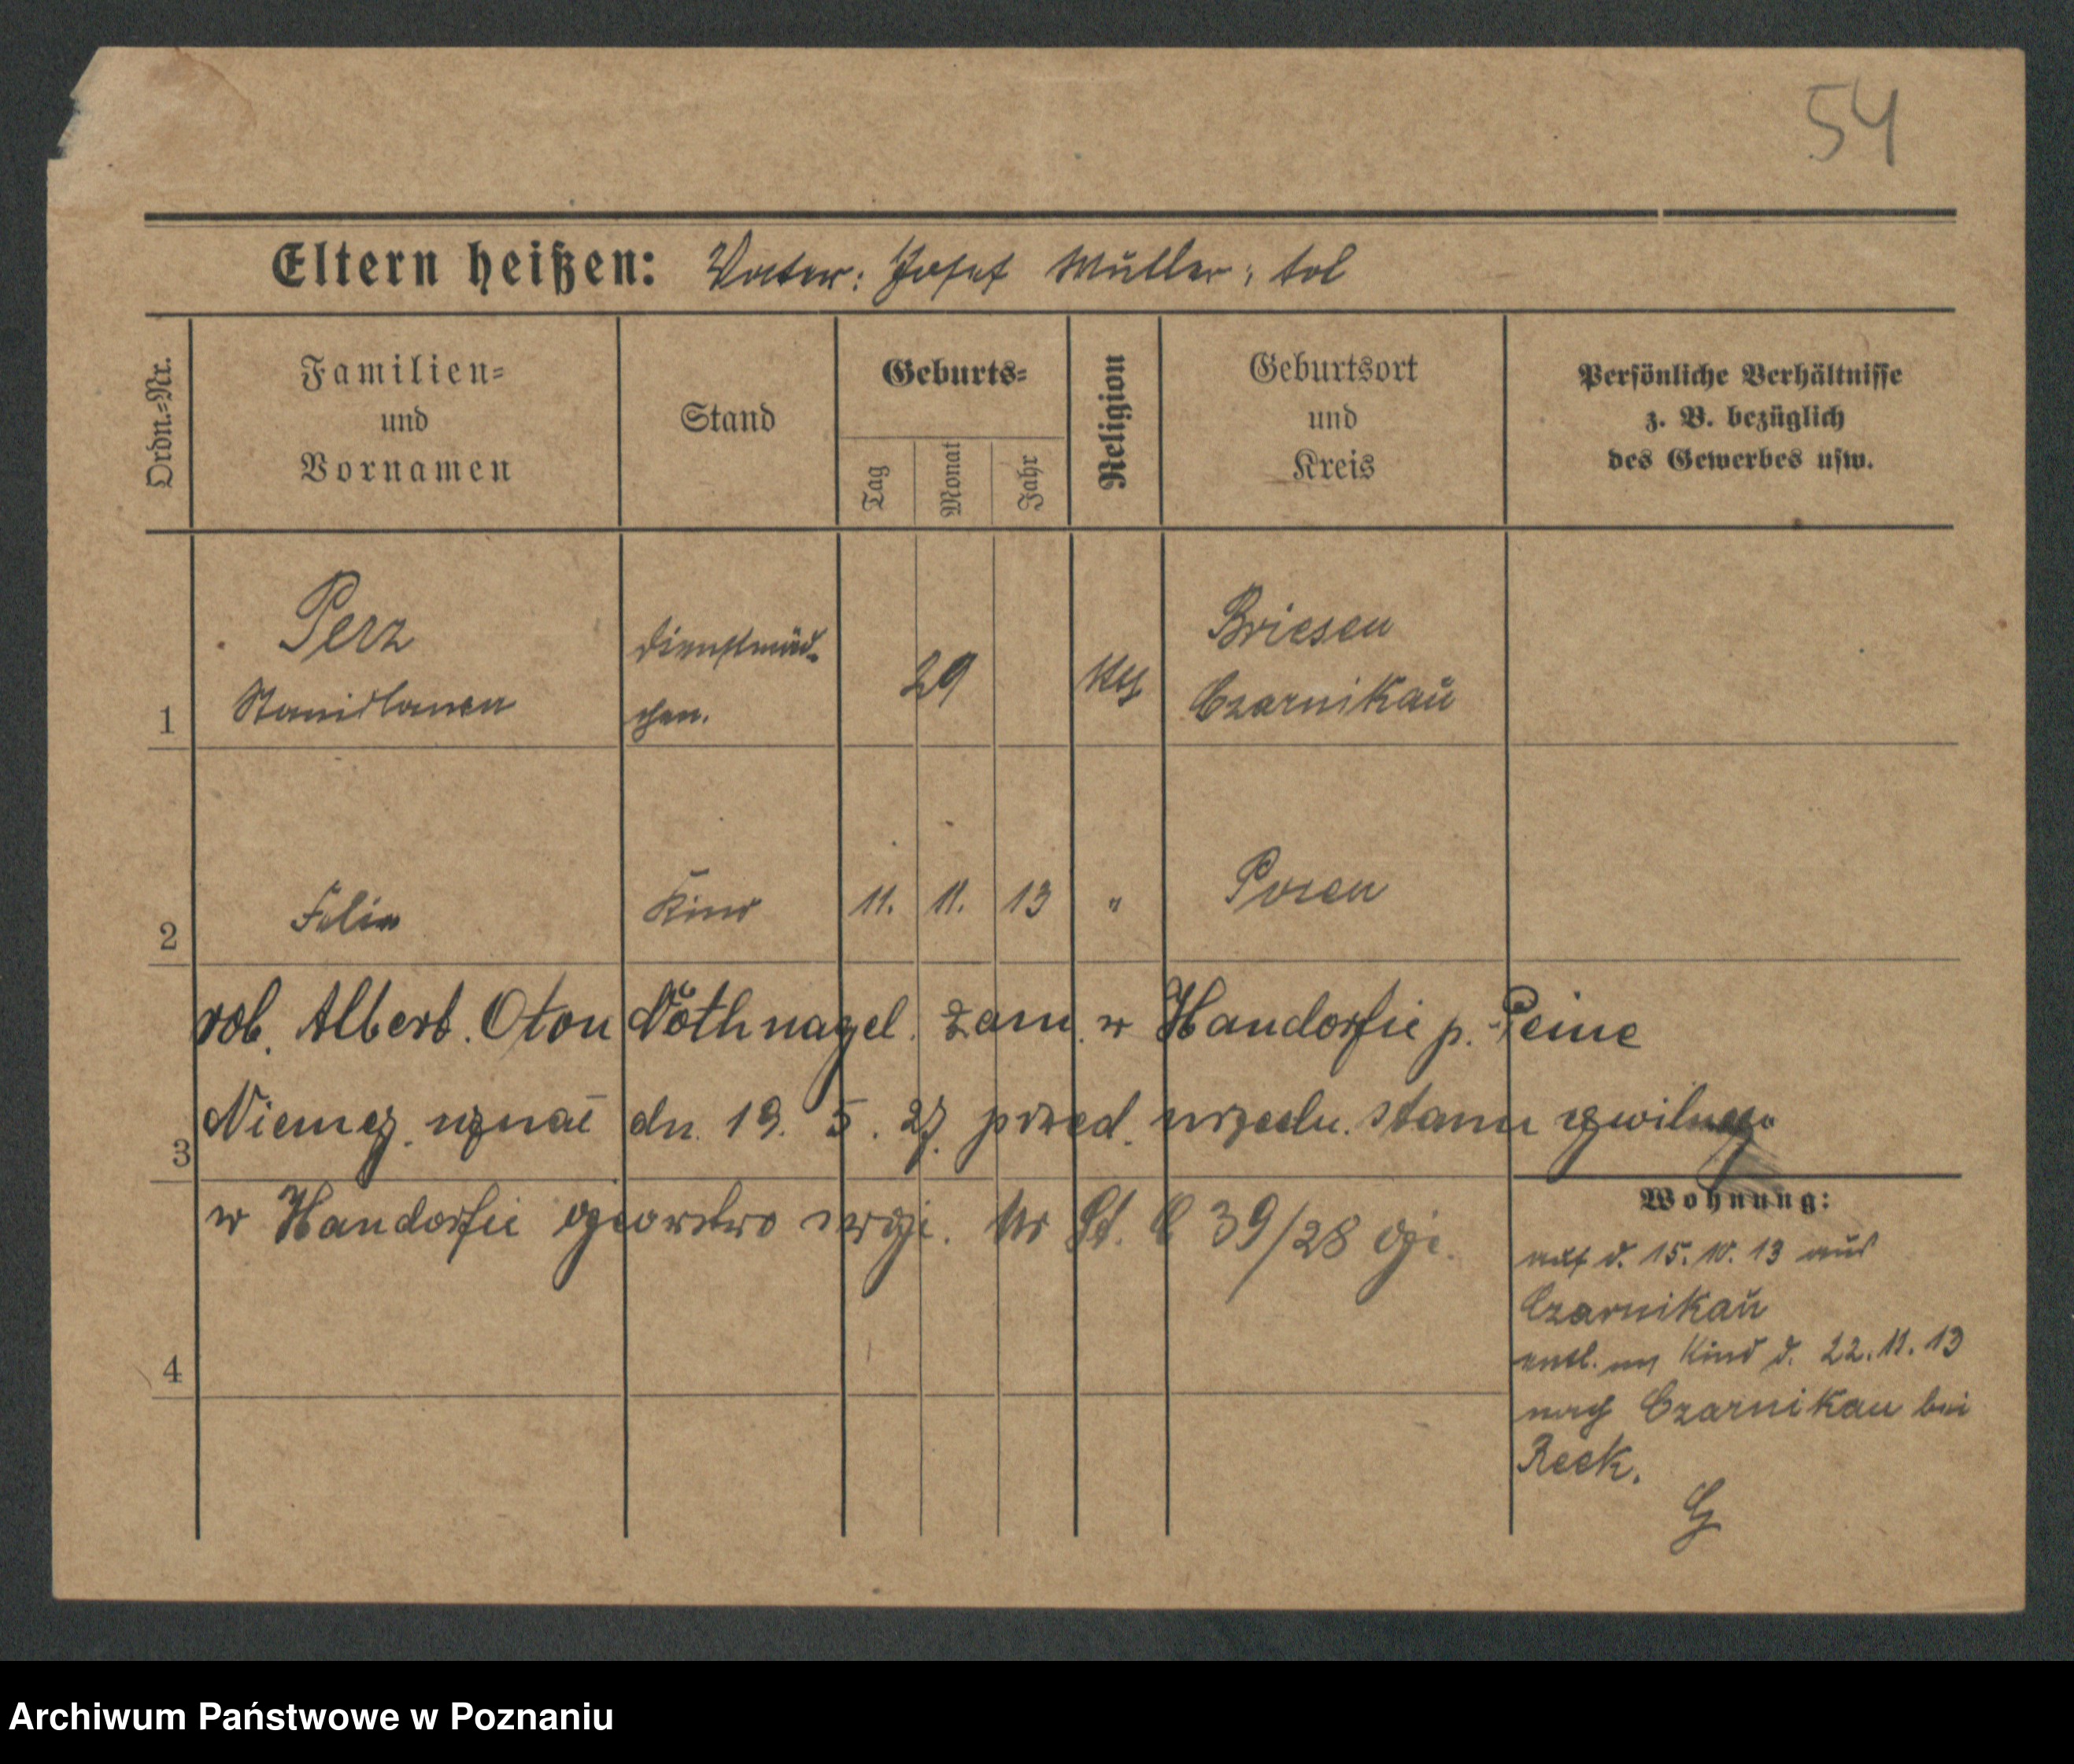 54
Eltern heißen: Vater: Josef Müller, tot
Ordn.-Nr.
Familien-
und
Vornamen
Stand
Geburts-
Tag
Monat
Jahr
Religion
Geburtsort
und
Kreis
Persönliche Verhältnisse
z. B. bezüglich
des Gewerbes usw.
1
Perz
Stanislawa
Dienstmäd-
chen.
29
kth
Briesen
Czarnikau
2
Felix
Kind
11. 11. 13
"
Posen
rob. Albert Oton Nöthnagel. zam. w Handorfie p. Peine
Niemcy. uznał dn. 19. 5. 27. przed. urzedn. stanu cywilnego
3
w Handorfie ojcowstwo swoje. Nr St. C 39/28
Wohnung:
auf d. 15. 10. 13 aus
Czarnikau
entl. m Kind d. 22. 11. 13
4
nach Czarnikau bei
Reek.
Archiwum Państwowe w Poznaniu